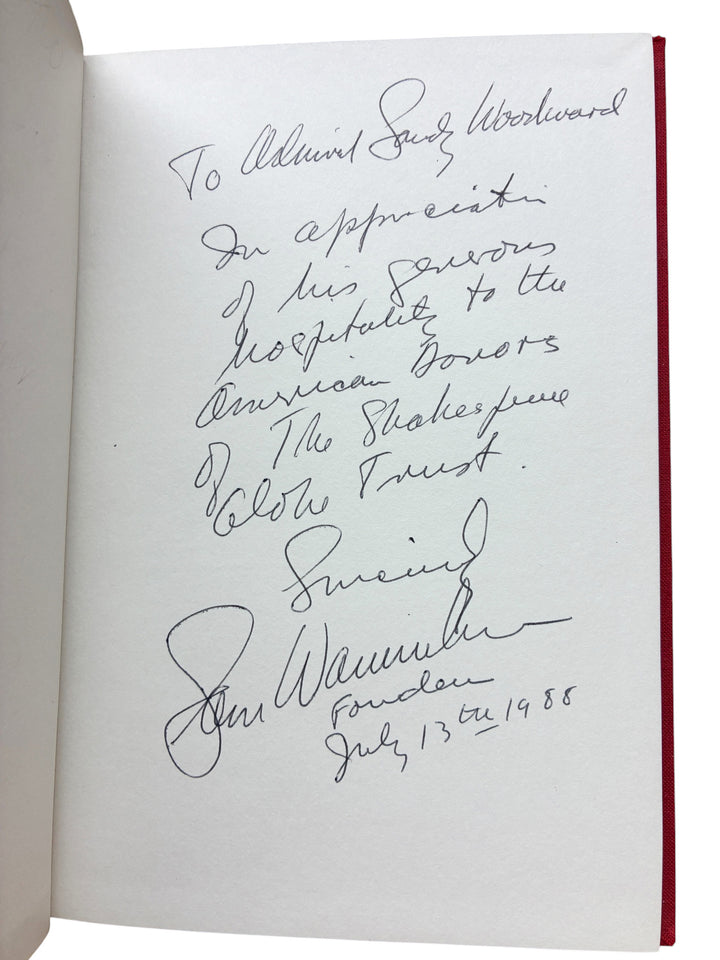 To Admiral Sandy Woodward
In appreciation
of his generous
hospitality to the
American Donors
of The Shakespeare
Globe Trust.
Sincerely
Sam Wanamaker
Founder
July 13th 1988